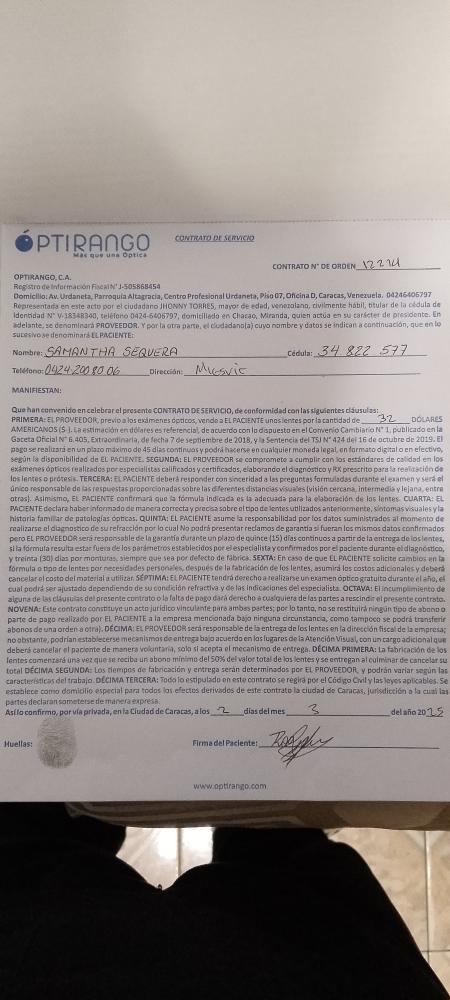 ÓPTIRANGO
Más que una Óptica
CONTRATO DE SERVICIO
CONTRATO N° DE ORDEN 12214
OPTIRANGO, C.A.
Registro de Información Fiscal N° J-505868454
Domicilio: Av. Urdaneta, Parroquia Altagracia, Centro Profesional Urdaneta, Piso 07, Oficina D, Caracas, Venezuela. 04246406797
Representada en este acto por el ciudadano JHONNY TORRES, mayor de edad, venezolano, civilmente hábil, titular de la cédula de
Identidad N° V-18348340, teléfono 0424-6406797, domiciliado en Chacao, Miranda, quien actúa en su carácter de presidente. En
adelante, se denominará PROVEEDOR. Y por la otra parte, el ciudadano(a) cuyo nombre y datos se indican a continuación, que en lo
sucesivo se denominará EL PACIENTE:
Nombre: SAMANTHA SEQUERA Cédula: 34.822 577
Teléfono: 0424.200 80 06 Dirección:
MANIFIESTAN:
Que han convenido en celebrar el presente CONTRATO DE SERVICIO, de conformidad con las siguientes cláusulas:
PRIMERA: EL PROVEEDOR, previo a los exámenes ópticos, vende a EL PACIENTE unos lentes por la cantidad de 32 DÓLARES
AMERICANOS ($-). La estimación en dólares es referencial, de acuerdo con lo dispuesto en el Convenio Cambiario N° 1, publicado en la
Gaceta Oficial N° 6.405, Extraordinaria, de fecha 7 de septiembre de 2018, y la Sentencia del TSJ N° 424 del 16 de octubre de 2019. El
pago se realizará en un plazo máximo de 45 días continuos y podrá hacerse en cualquier moneda legal, en formato digital o en efectivo,
según la disponibilidad de EL PACIENTE. SEGUNDA: EL PROVEEDOR se compromete a cumplir con los estándares de calidad en los
exámenes ópticos realizados por especialistas calificados y certificados, elaborando el diagnóstico y RX prescrito para la realización de
los lentes o prótesis. TERCERA: EL PACIENTE deberá responder con sinceridad a las preguntas formuladas durante el examen y será el
único responsable de las respuestas proporcionadas sobre las diferentes distancias visuales (visión cercana, intermedia y lejana, entre
otras). Asimismo, EL PACIENTE confirmará que la fórmula indicada es la adecuada para la elaboración de los lentes. CUARTA: EL
PACIENTE declara haber informado de manera correcta y precisa sobre el tipo de lentes utilizados anteriormente, síntomas visuales y la
historia familiar de patologías ópticas. QUINTA: EL PACIENTE asume la responsabilidad por los datos suministrados al momento de
realizarse el diagnostico de su refracción por lo cual No podrá presentar reclamos de garantía si fueran los mismos datos confirmados
pero EL PROVEEDOR será responsable de la garantía durante un plazo de quince (15) días continuos a partir de la entrega de los lentes,
si la fórmula resulta estar fuera de los parámetros establecidos por el especialista y confirmados por el paciente durante el diagnóstico,
y treinta (30) días por monturas, siempre que sea por defecto de fábrica. SEXTA: En caso de que EL PACIENTE solicite cambios en la
fórmula o tipo de lentes por necesidades personales, después de la fabricación de los lentes, asumirá los costos adicionales y deberá
cancelar el costo del material a utilizar. SÉPTIMA: EL PACIENTE tendrá derecho a realizarse un examen óptico gratuito durante el año, el
cual podrá ser ajustado dependiendo de su condición refractiva y de las indicaciones del especialista. OCTAVA: El incumplimiento de
alguna de las cláusulas del presente contrato o la falta de pago dará derecho a cualquiera de las partes a rescindir el presente contrato.
NOVENA: Este contrato constituye un acto jurídico vinculante para ambas partes; por lo tanto, no se restituirá ningún tipo de abono o
parte de pago realizado por EL PACIENTE a la empresa mencionada bajo ninguna circunstancia, como tampoco se podrá transferir
abonos de una orden a otra). DÉCIMA: EL PROVEEDOR será responsable de la entrega de los lentes en la dirección fiscal de la empresa;
no obstante, podrían establecerse mecanismos de entrega bajo acuerdo en los lugares de la Atención Visual, con un cargo adicional que
deberá cancelar el paciente de manera voluntaria, solo si acepta el mecanismo de entrega. DÉCIMA PRIMERA: La fabricación de los
lentes comenzará una vez que se reciba un abono mínimo del 50% del valor total de los lentes y se entregan al culminar de cancelar su
total DÉCIMA SEGUNDA: Los tiempos de fabricación y entrega serán determinados por EL PROVEEDOR, y podrán variar según las
características del trabajo. DÉCIMA TERCERA: Todo lo estipulado en este contrato se regirá por el Código Civil y las leyes aplicables. Se
establece como domicilio especial para todos los efectos derivados de este contrato la ciudad de Caracas, jurisdicción a la cual las
partes declaran someterse de manera expresa.
Así lo confirmo, por vía privada, en la Ciudad de Caracas, a los 2 días del mes 3 del año 2025
Huellas: Firma del Paciente:
www.optirango.com